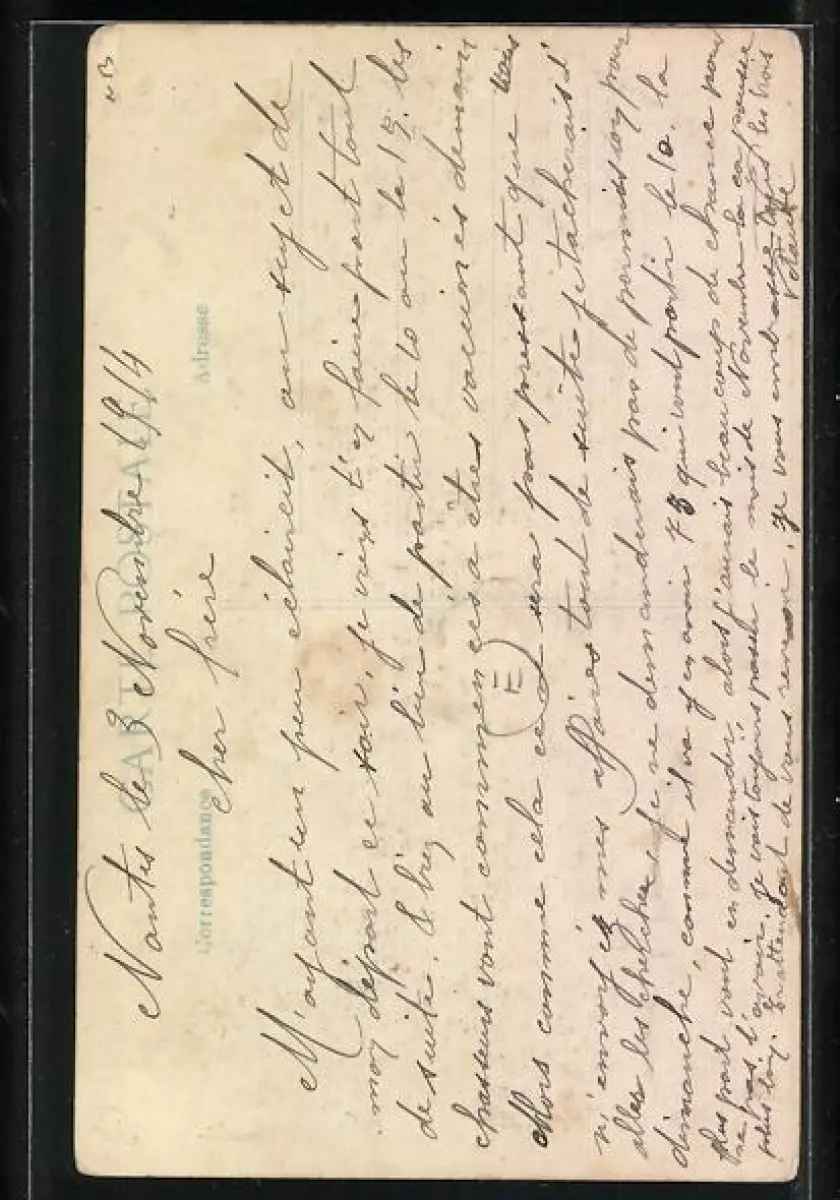 CARTE POSTALE
Correspondance
Adresse
Nantes le 3 Novembre 1914
Cher frère
M'ayant un peu éclaircit, au sujet de
moy départ ce soir, je viens t'ey faire part tout
de suite. & biez au lieu de partir le 10 ou le 15. les
chasseurs vont commencés a êtres vaccinés demain
Alors comme cela ce sera pas pressant que
n'envoyéz mes affaires tout de suite je tacherais d'
aller les chelcher, je ne demanderais pas de permissioy pour
dimanche, comme il va y en avoir 75 qui vont partir le 10. la
plus part vont en demander, alors j'aurais beaucoup de chance pour
ne pas l'avoir. Je vais toujours passer le mois de Novembre la
plus loiy. Enattendant de vous revoir, je vous embrasse les trois